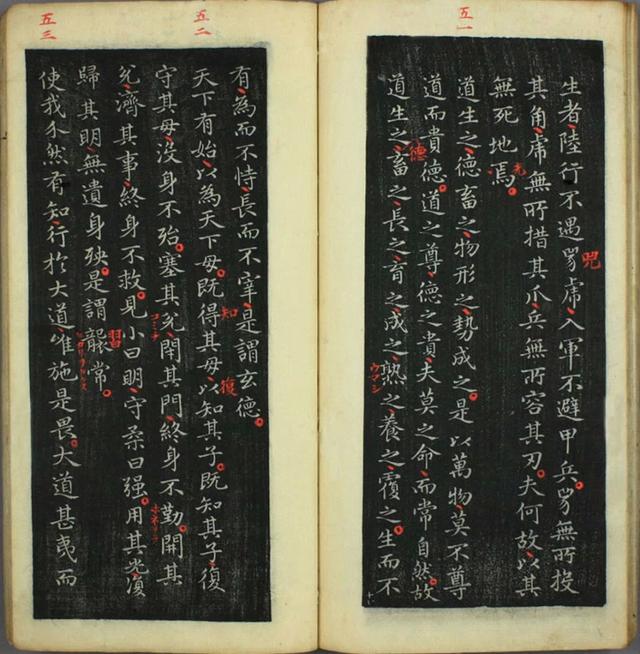 五一
生者陸行不遇兕虎入軍不避甲兵兕無所投
兕
其角虎無所措其爪兵無所容其刃夫何故以其
無死地焉
道生之德畜之物形之勢成之是以萬物莫不尊
道而貴德道之尊德之貴夫莫之命而常自然故
德
道生之畜之長之育之成之熟之養之覆之生而不
ウマシ
五二
有為而不恃長而不宰是謂玄德
天下有始以為天下母既得其母以知其子既知其子復
知
復
守其母沒身不殆塞其兌閉其門終身不勤開其
コミチ
兌濟其事終身不救見小曰明守柔曰強用其光復
歸其明無遺身殃是謂襲常
習
五三
使我介然有知行於大道唯施是畏大道甚夷而